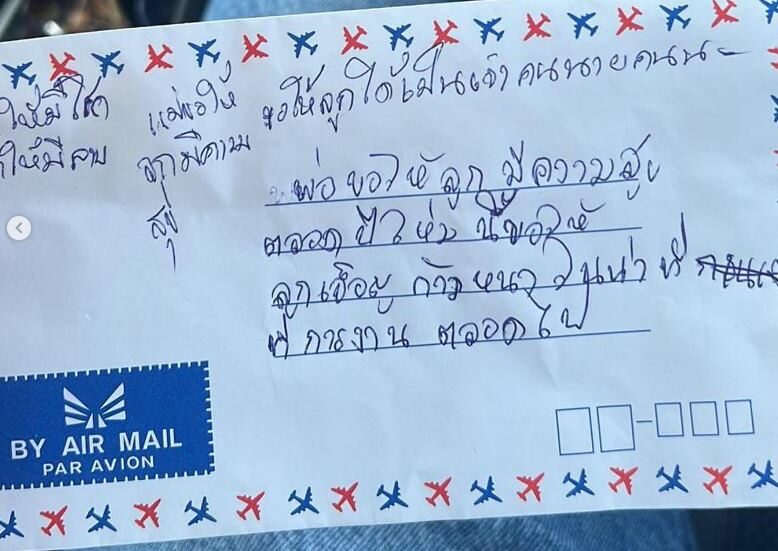 ให้มีโชค
ให้มีลาภ
แม่ขอให้
ลูกมีความ
สุข
ขอให้ลูกได้เป็นเจ้าคนนายคนนะ
พ่อขอให้ลูกมีความสุข
ตลอดปีใหม่นี้ขอให้
ลูกเจริญก้าวหน้าในหน้าที่
ที่การงานตลอดไป
BY AIR MAIL
PAR AVION